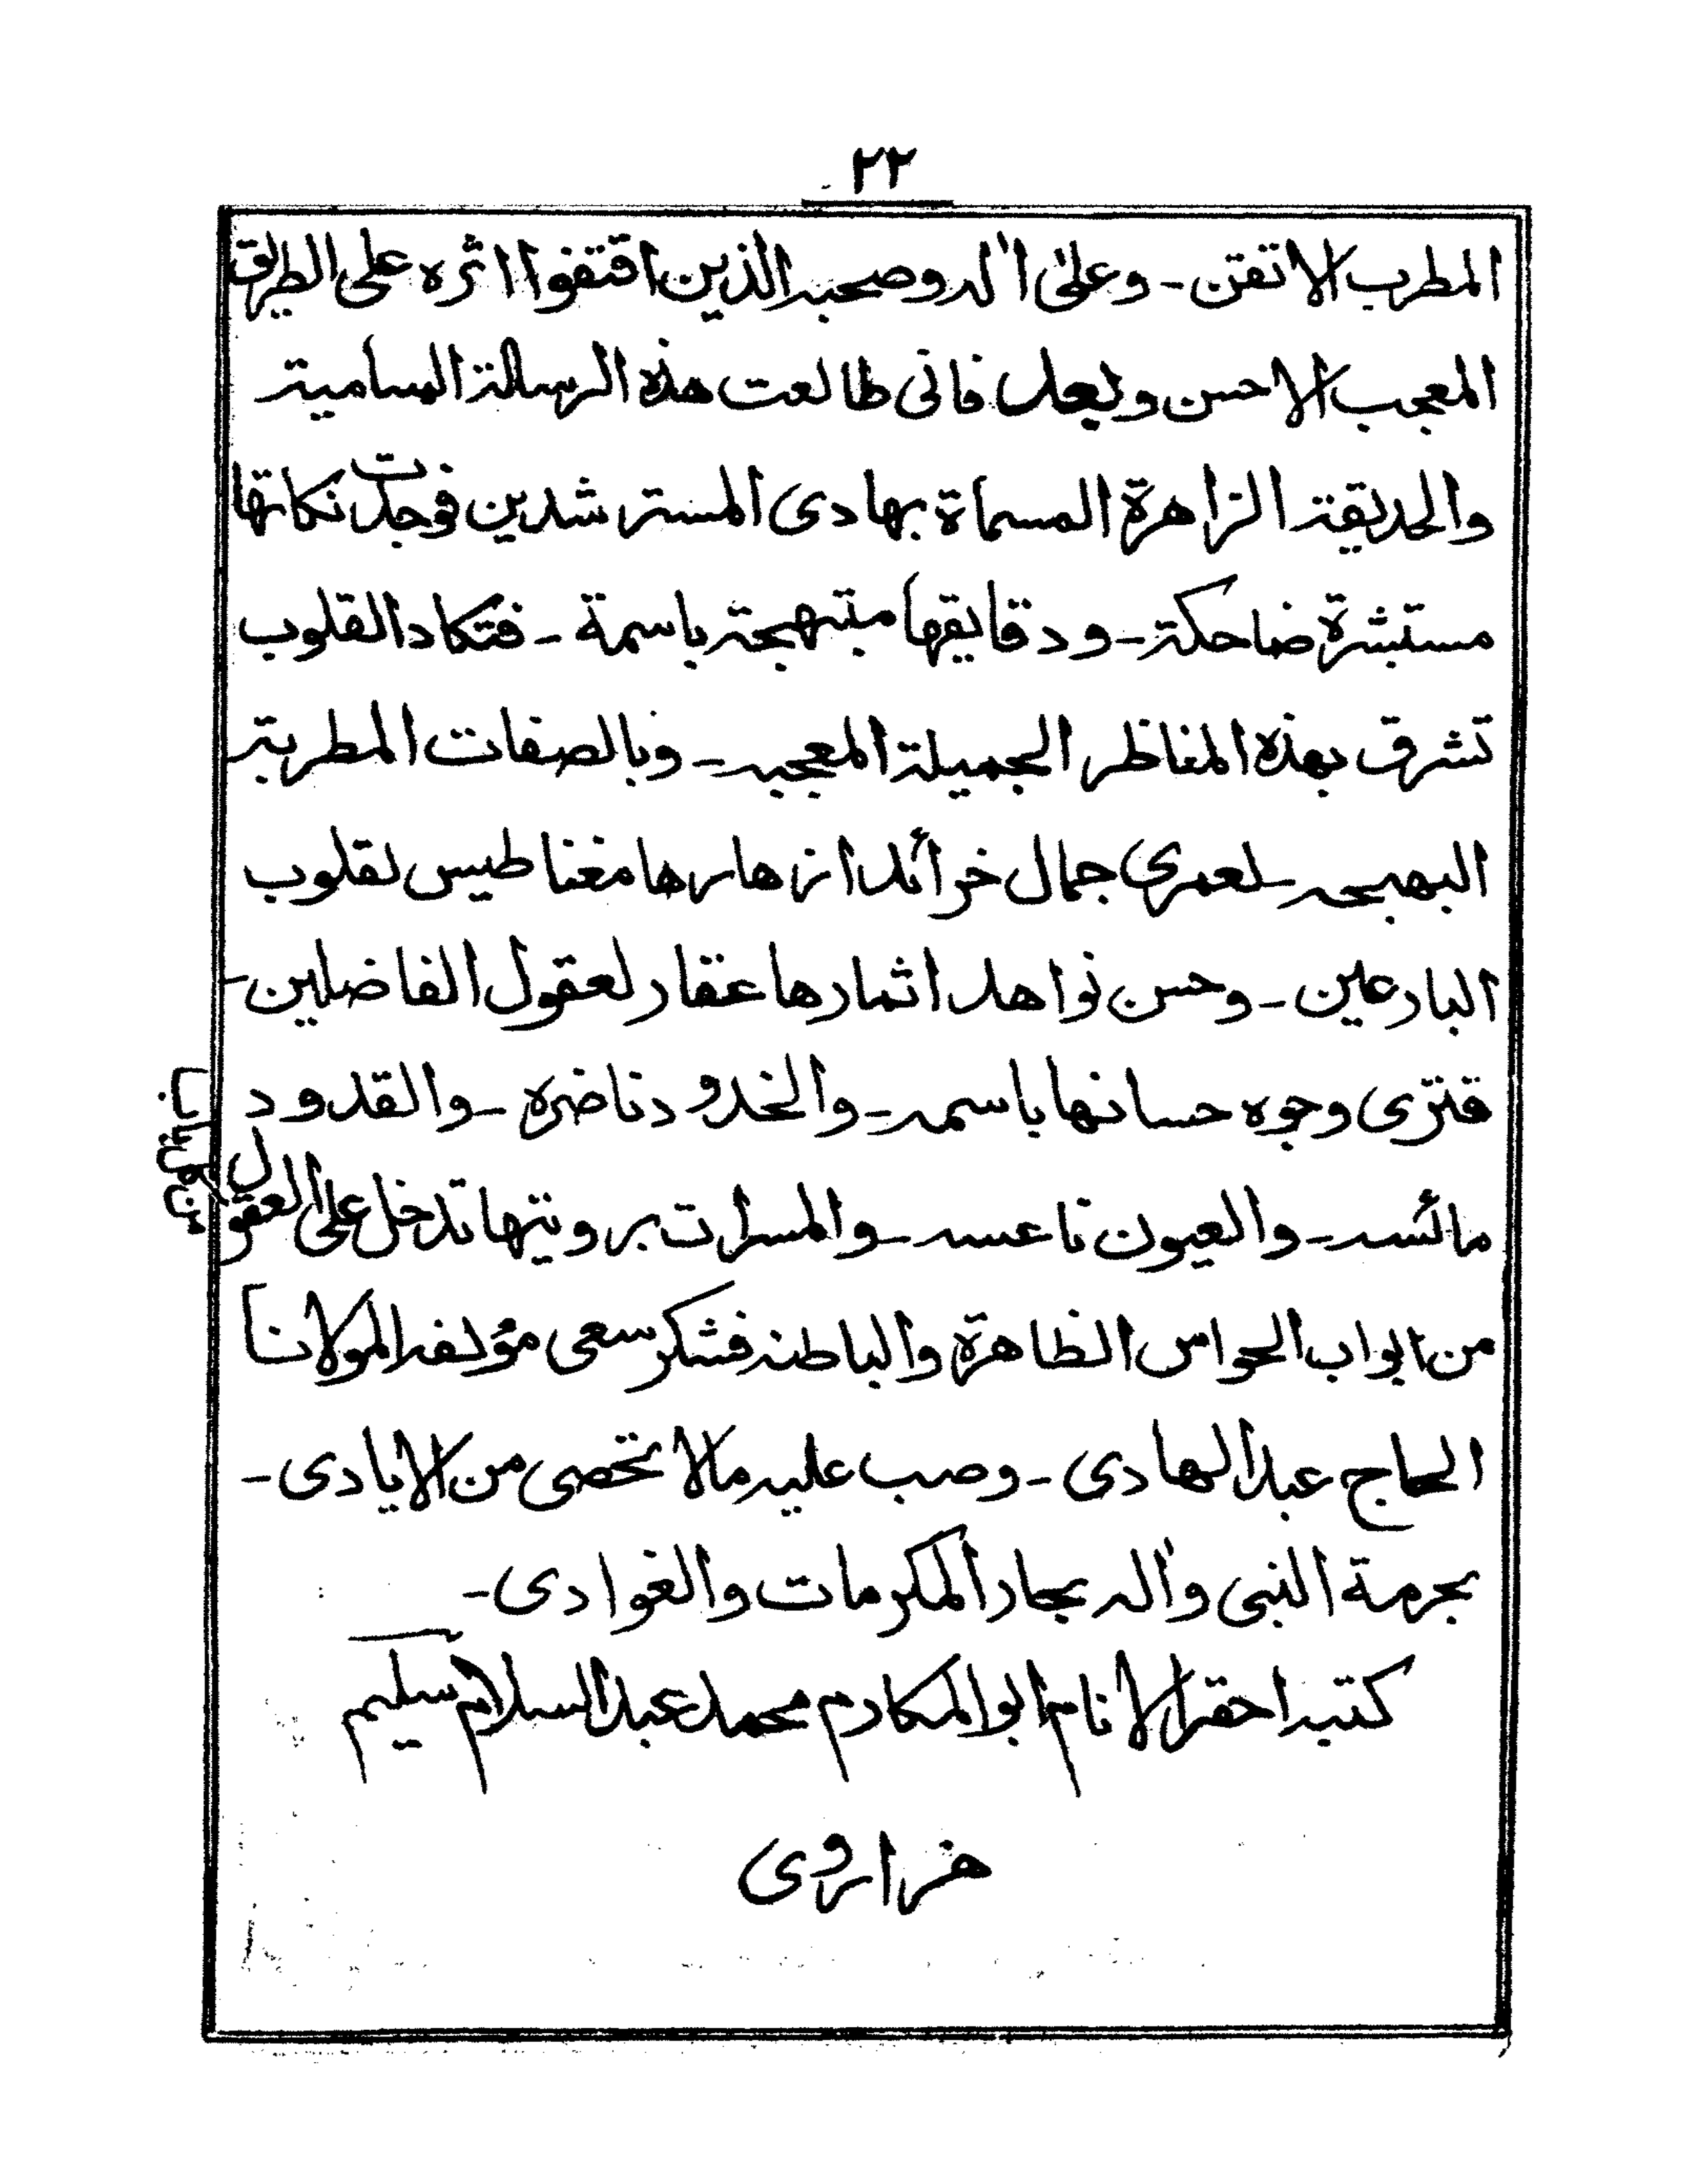 ٢٢
المطرب الاتقن ـ وعلىٰ اٰله وصحبه الذين اقتفوا اثره على الطريق
المعجب الاحسن وبعد فانى طالعت هذه الرسالة السامية
والحديقة الزاهرة المسماة بهادى المسترشدين فوجدت نكاتها
مستبشرة ضاحكة ـ ودقايقها مبتهجة باسمة ـ فتكاد القلوب
تشرق بهذه المناظر الجميلة المعجبه ـ وبالصفات المطربة
البهيجه ـ لعمري جمال خرائد ازهارها مغناطيس لقلوب
البارعين ـ وحسن نواهد اثمارها عقار لعقول الفاضلين ـ
فترى وجوه حسانها باسمه ـ والخدود ناضره ـ والقدود
مائسه ـ والعيون ناعسه ـ والمسرات برويتها تدخل على العقول
من ابواب الحواس الظاهرة والباطنه فشكر سعى مؤلفه المولانا
الحاج عبد الهادى ـ وصب عليه مالا تحصى من الايادى ـ
بحرمة النبى واٰله بحار المكرمات والغوادى ـ
كتبه احقر الانام ابو المكارم محمد عبد السلام سليم
هزاروى